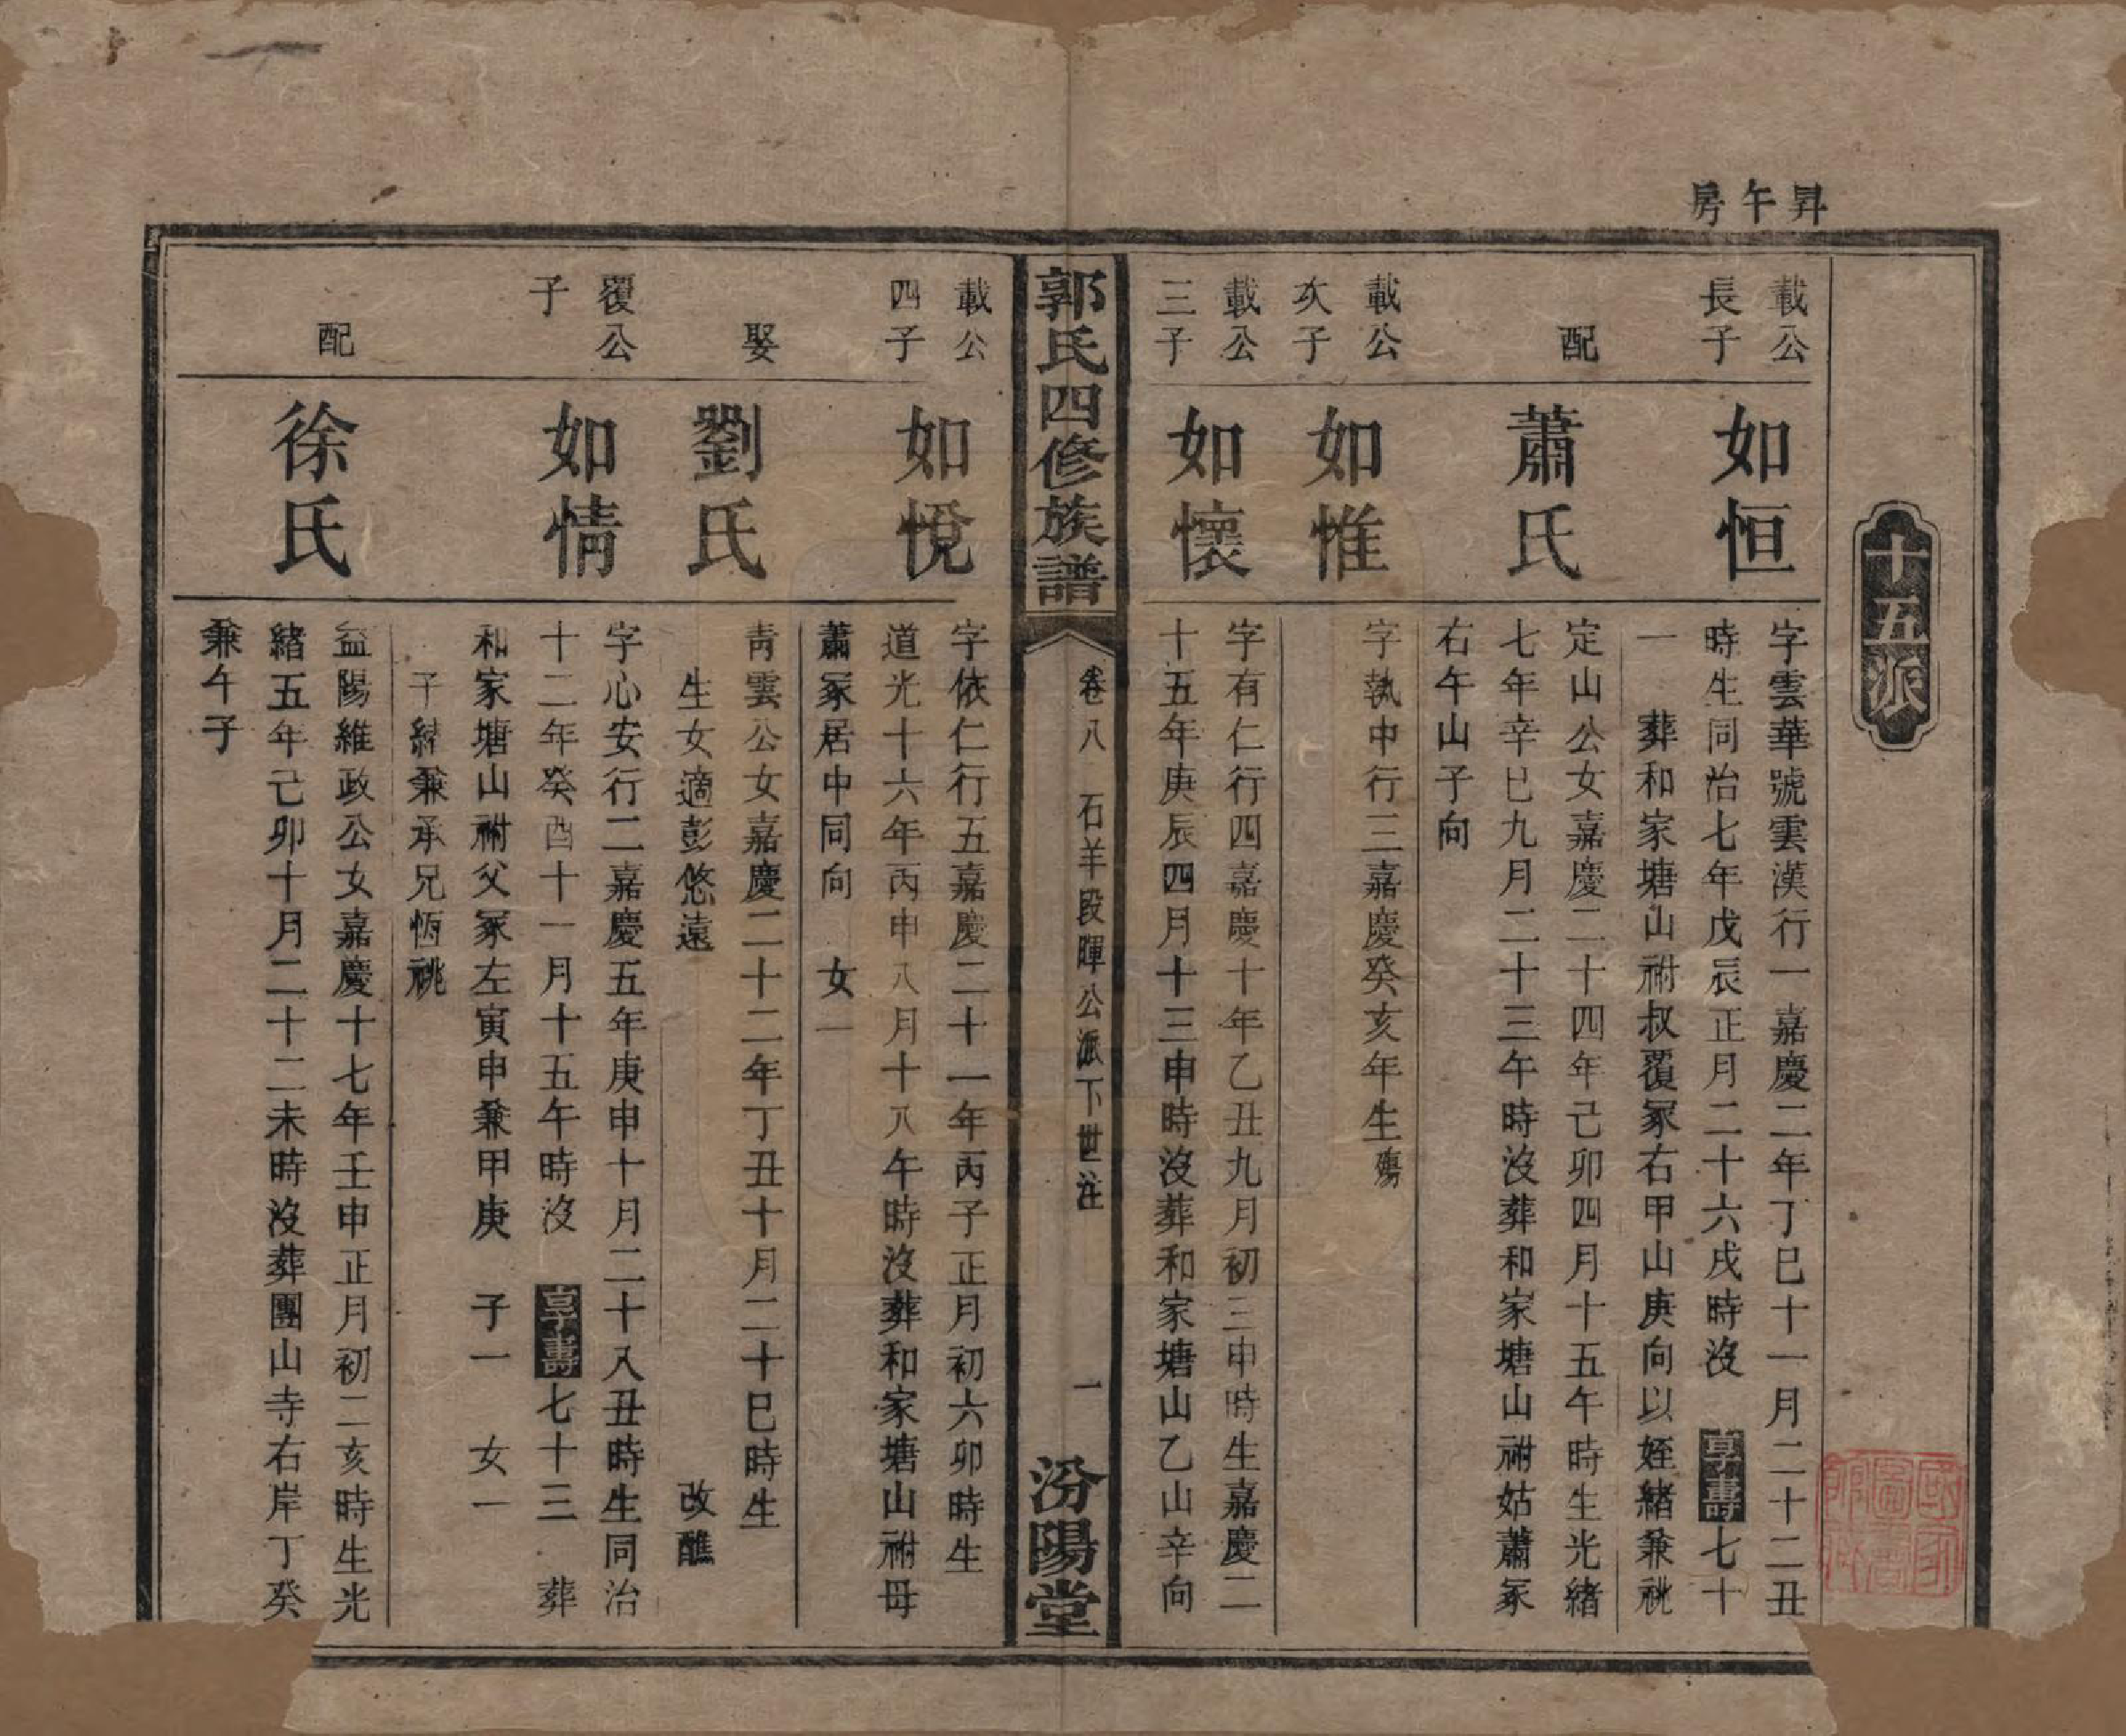 昇午房
十五派
載公長子
如恒
字雲華號雲漢行一嘉慶二年丁巳十一月二十二丑
時生同治七年戊辰正月二十六戌時沒 享壽七十
一 葬和家塘山祔叔覆冢右甲山庚向以姪緒兼祧
配
蕭氏
定山公女嘉慶二十四年己卯四月十五午時生光緒
七年辛巳九月二十三午時沒葬和家塘山祔姑蕭冢
右午山子向
載公次子
如惟
字執中行三嘉慶癸亥年生殤
載公三子
如懷
字有仁行四嘉慶十年乙丑九月初三申時生嘉慶二
十五年庚辰四月十三申時沒葬和家塘山乙山辛向
郭氏四修族譜
卷八 石羊段暉公派下世注
一
汾陽堂
載公四子
如悅
字依仁行五嘉慶二十一年丙子正月初六卯時生
道光十六年丙申八月十八午時沒葬和家塘山祔母
蕭冢居中同向 女一
娶
劉氏
青雲公女嘉慶二十二年丁丑十月二十巳時生
生女適彭悠遠 改醮
覆公子
如情
字心安行二嘉慶五年庚申十月二十八丑時生同治
十二年癸酉十一月十五午時沒 享壽七十三 葬
和家塘山祔父冢左寅申兼甲庚 子一 女一
子緒兼承兄恆祧
配
徐氏
益陽維政公女嘉慶十七年壬申正月初二亥時生光
緒五年己卯十月二十二未時沒葬團山寺右岸丁癸
兼午子